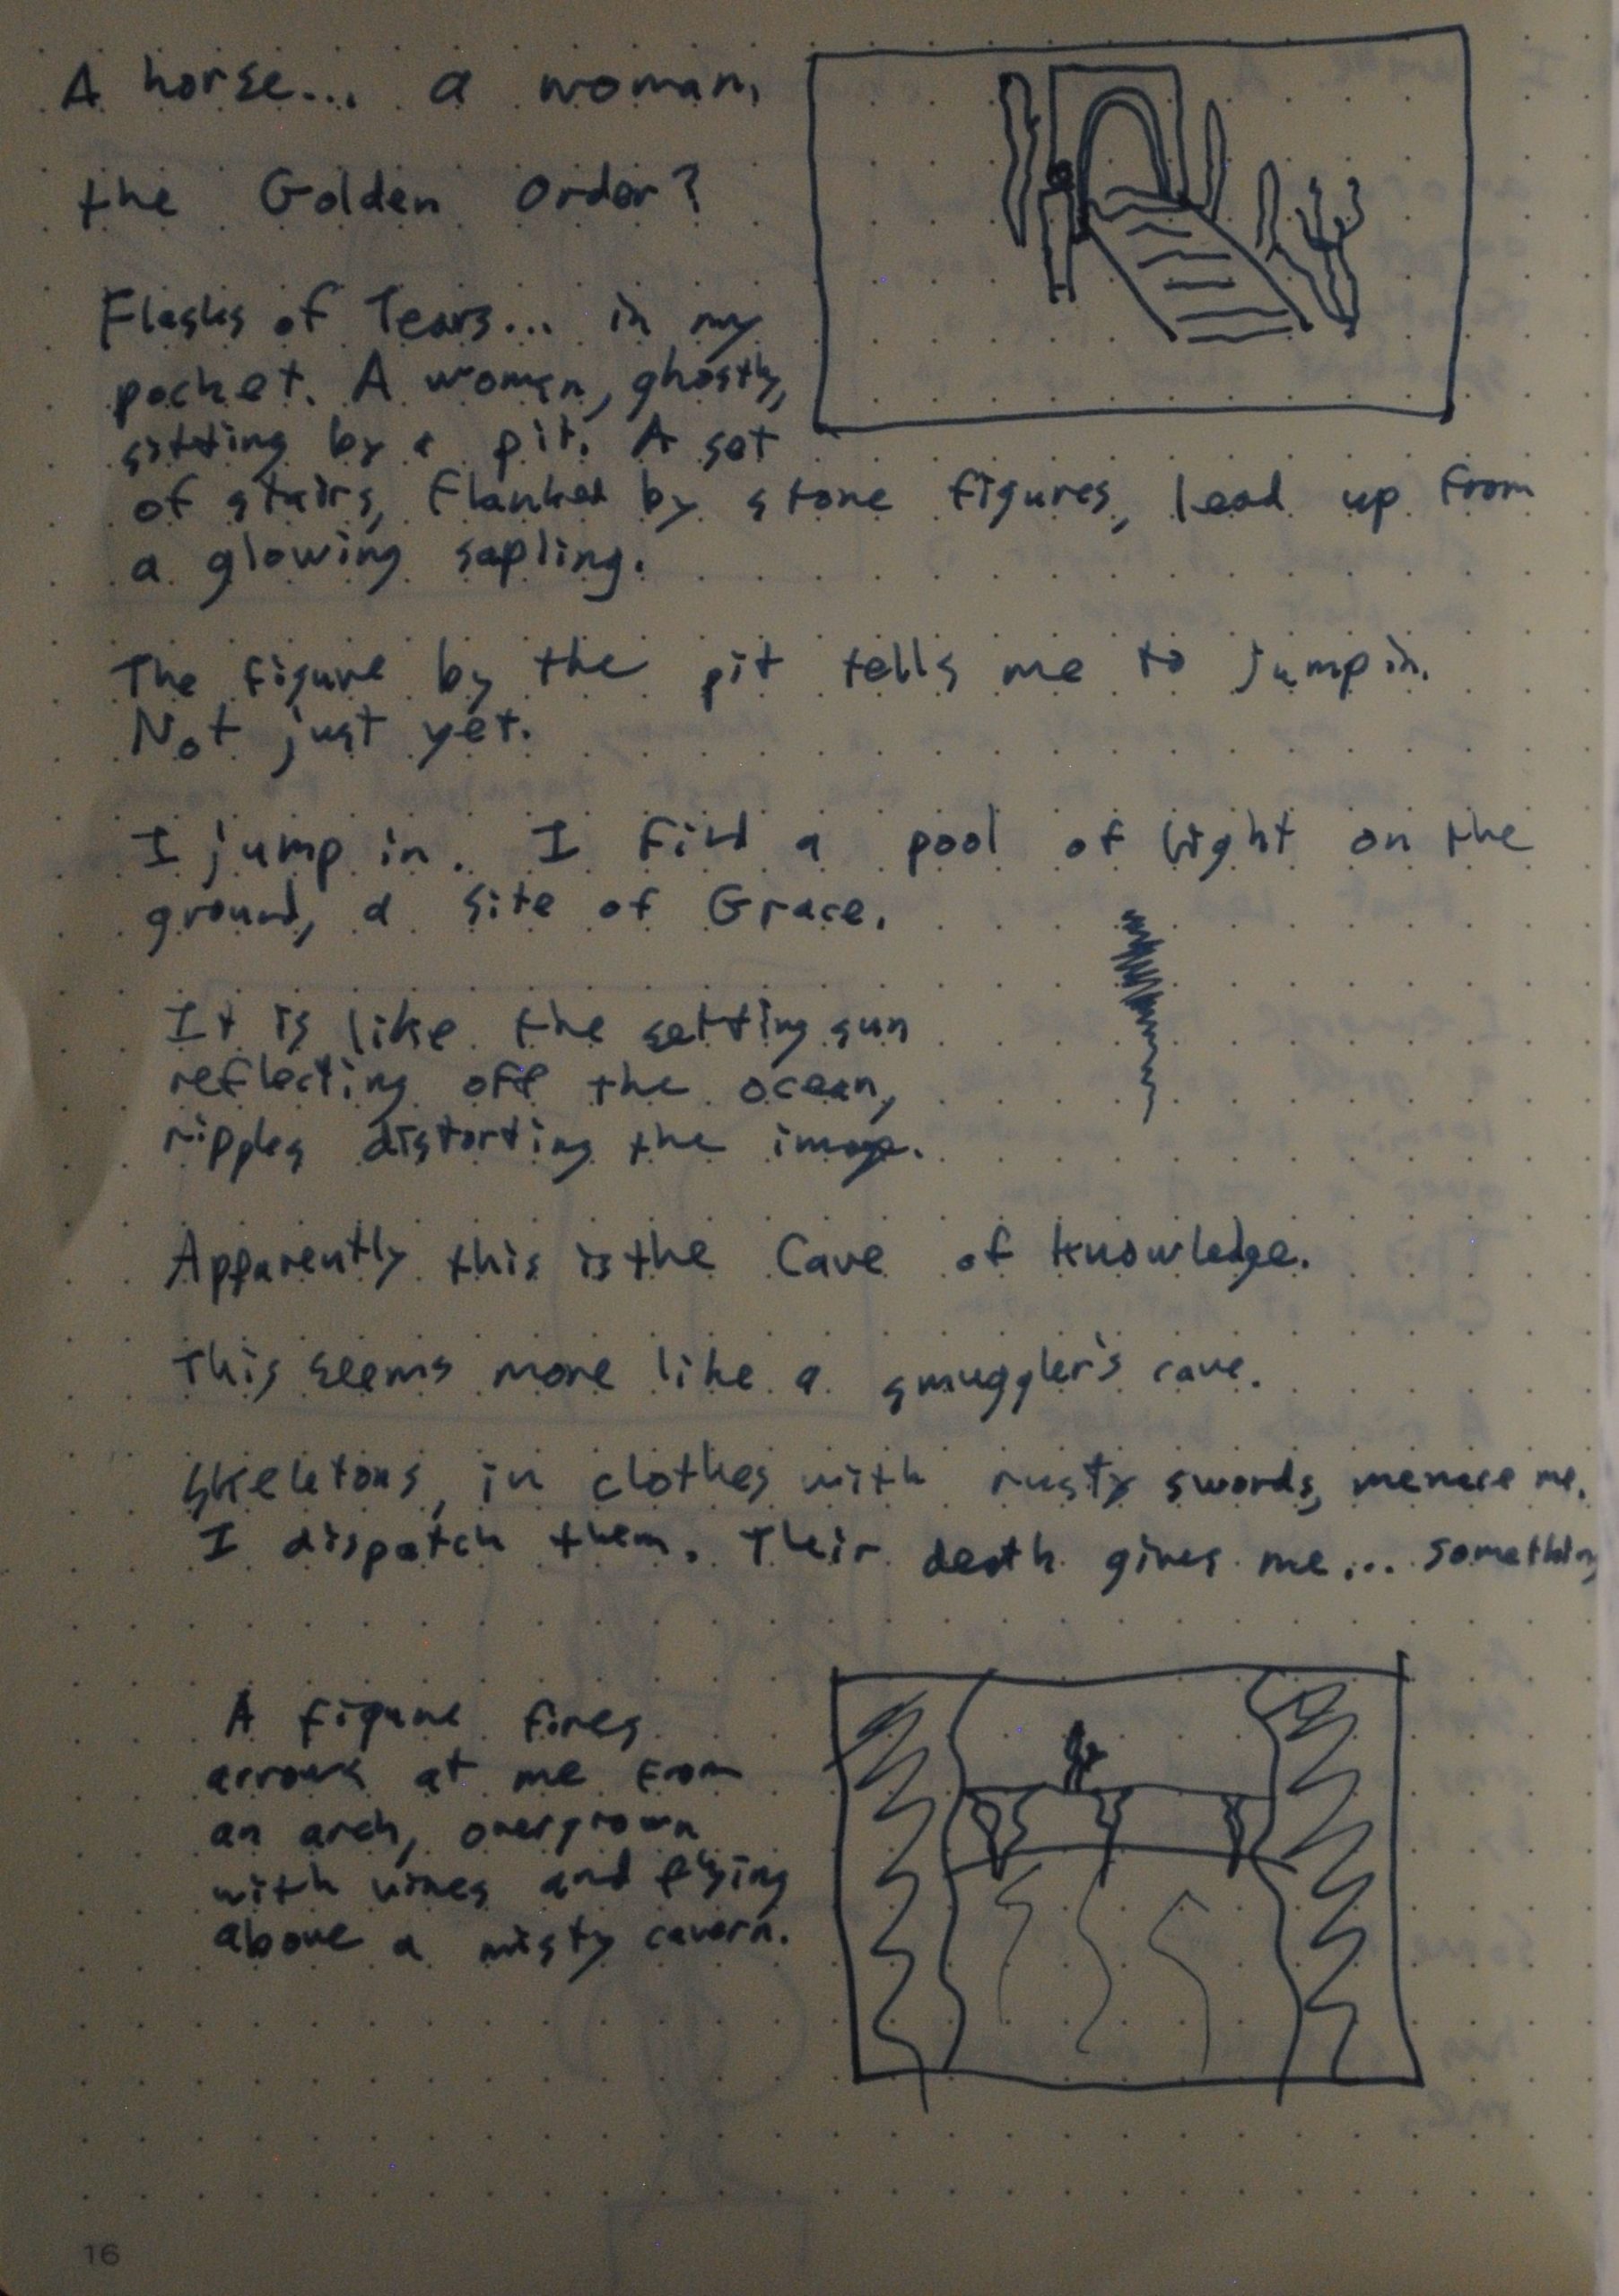 A horse... a woman,
the Golden Order?
Flasks of Tears... in my
pocket. A woman, ghostly,
sitting by a pit. A set
of stairs, flanked by stone figures, lead up from
a glowing sapling.
The figure by the pit tells me to jump in.
Not just yet.
I jump in. I find a pool of light on the
ground, a site of Grace.
It is like the setting sun
reflecting off the ocean,
ripples distorting the image.
Apparently this is the Cave of Knowledge.
This seems more like a smuggler's cave.
Skeletons, in clothes with rusty swords, menace me.
I dispatch them. Their death gives me... something
A figure fires
arrows at me from
an arch, overgrown
with vines and flying
above a misty cavern.
16